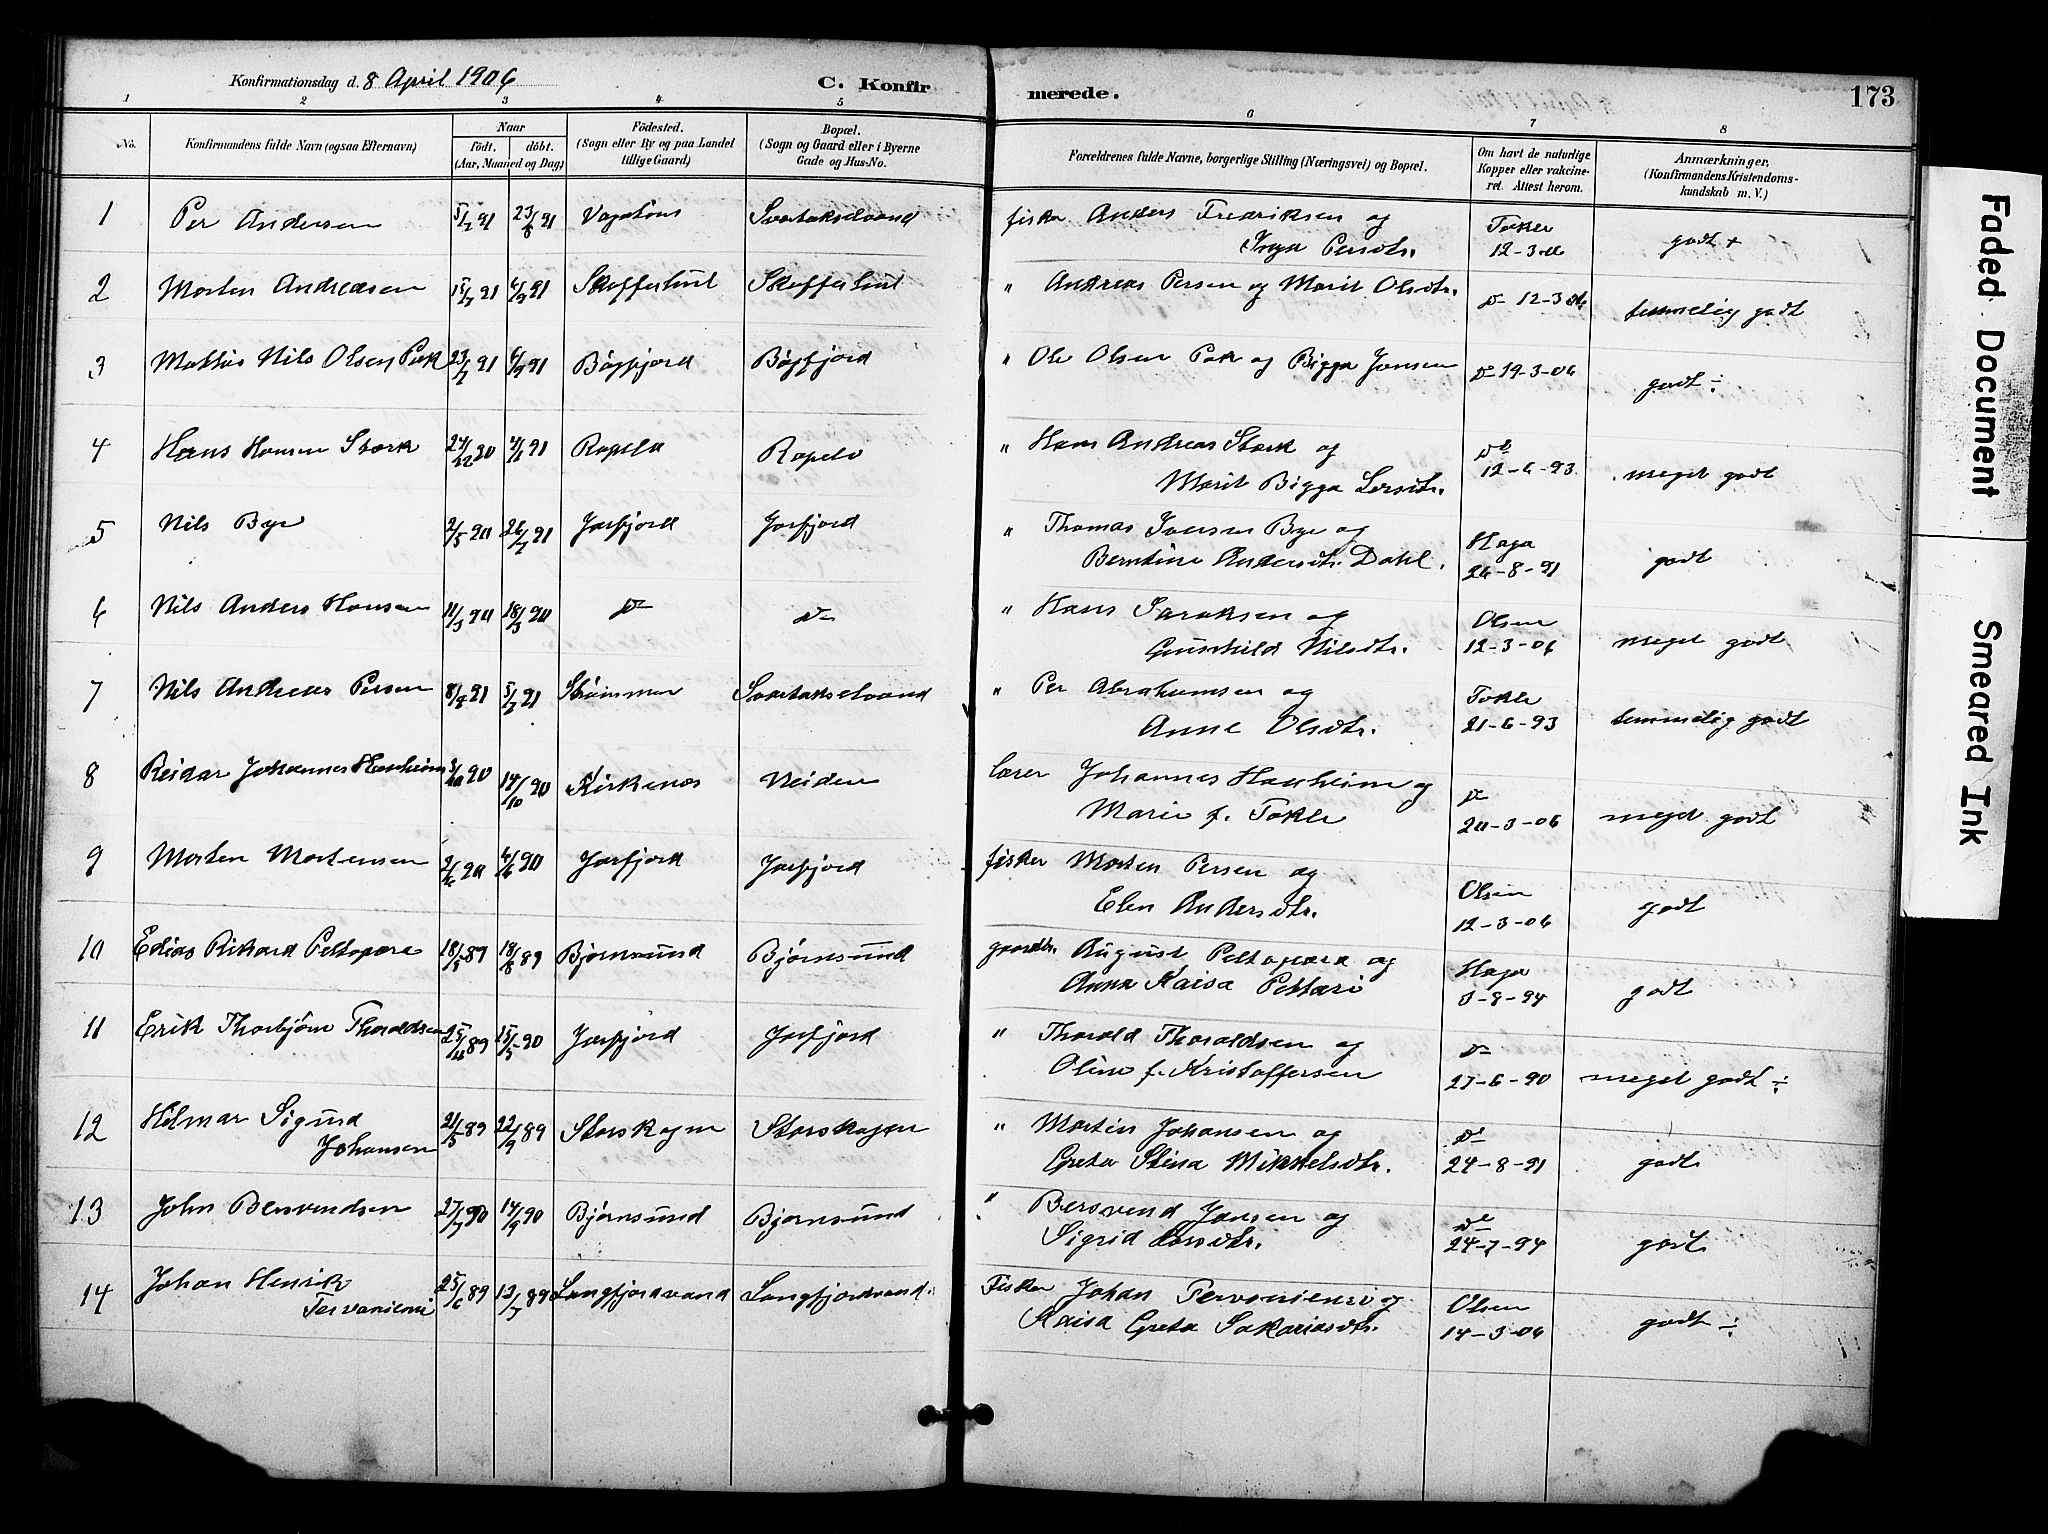 Konfirmationsdag d. 8 April 1906
C. Konfirmerede.
173
1 2 3 4 5 6 7 8
No.
Konfirmandens fulde Navn (ogsaa Efternavn)
Naar
födt. döbt.
(Aar, Maaned og Dag)
Födested.
(Sogn eller By og paa Landet
tillige Gaard)
Bopæl.
(Sogn og Gaard eller i Byerne
Gade og Hus-No.
Forældrenes fulde Navne, borgerlige Stilling (Næringsvei) og Bopæl.
Om havt de naturlige
Kopper eller vakcine-
ret. Attest herom.
Anmærkninger,
(Konfirmandens Kristendoms-
kundskab m. V.)
1 Per Andersen 91 23/8 91 Svartakselvand fisker Anders Fredriksen og
Inga Persdtr. Tokle
12-3- godt +
2 Morten Andreasen 15/7 91 6/9 91 Skofferhut Skofferhut " Andreas Persen og Marit Olsdtr. D- 12-3- temmelig godt
3 Nils Olsen Pak 23/7 91 6/9 91 Bøgfjord Bøgfjord " Ole Olsen Pak og Bigga Jonsen D- 19-3-06 godt ÷
4 Hans Hansen Stark 24/12 90 91 Ropelv Ropelv " Hans Andreas Stark og
Marit Bigga Larsdtr. Do 12-6-93 meget godt
5 Nils Bye 2/5 90 26/7 91 Jarfjord Jarfjord " Thomas Iversen Bye og
Berntine Andersdtr. Dahl. Haga
26-8-91 godt
6 Nils Anders Hansen 11/3 90 18/3 90 D- D- " Hans Saraksen og
Gunhild Nilsdtr. Olsen
12-3-06 meget godt
7 Nils Andreas Persen 91 91 Strømmen Svartakselvand " Per Abrahamsen og
Anne Olsdtr. Tokle
21-6-93 temmelig godt
8 Reidar Johannes Hauheim 90 14/10 90 Kirkenes Neiden lærer Johannes Hauheim og
Marie f. Tokle D-
20-3-06 meget godt
9 Morten Mortensen 90 4/6 90 Jarfjord Jarfjord fisker Morten Persen og
Elen Andersdtr. Olsen
12-3-06 godt
10 Rikard Peltopera 18/5 89 18/8 89 Bjørnsund Bjørnsund gaardbr. August Peltopera og
Anna Kaisa Pettari Haga
3-8-94 godt
11 Erik Thorbjørn Thoraldsen 25/11 89 25/5 90 Jarfjord Jarfjord " Thorald Thoraldsen og
Oline f. Kristoffersen D-
27-6-90 meget godt ÷
12 Hilmar Sigurd
Johansen 21/5 89 22/9 89 Storskogen Storskogen " Martin Johansen og
Greta Stina Mikkelsdtr. Do
24-8-91 godt
13 John Bersvendsen 27/7 90 14/9 90 Bjørnsund Bjørnsund " Bersvend Jansen og
Sigrid Larsdtr. Do
24-7-94 godt
14 Johan Henrik
Tervaniemi 25/6 89 12/7 89 Langfjordvand Langfjordvand Fisker Johan Tervaniemi og
Kaisa Greta Sakariasdtr. Olsen
14-3-06 godt ÷
Faded Document
Smeared Ink